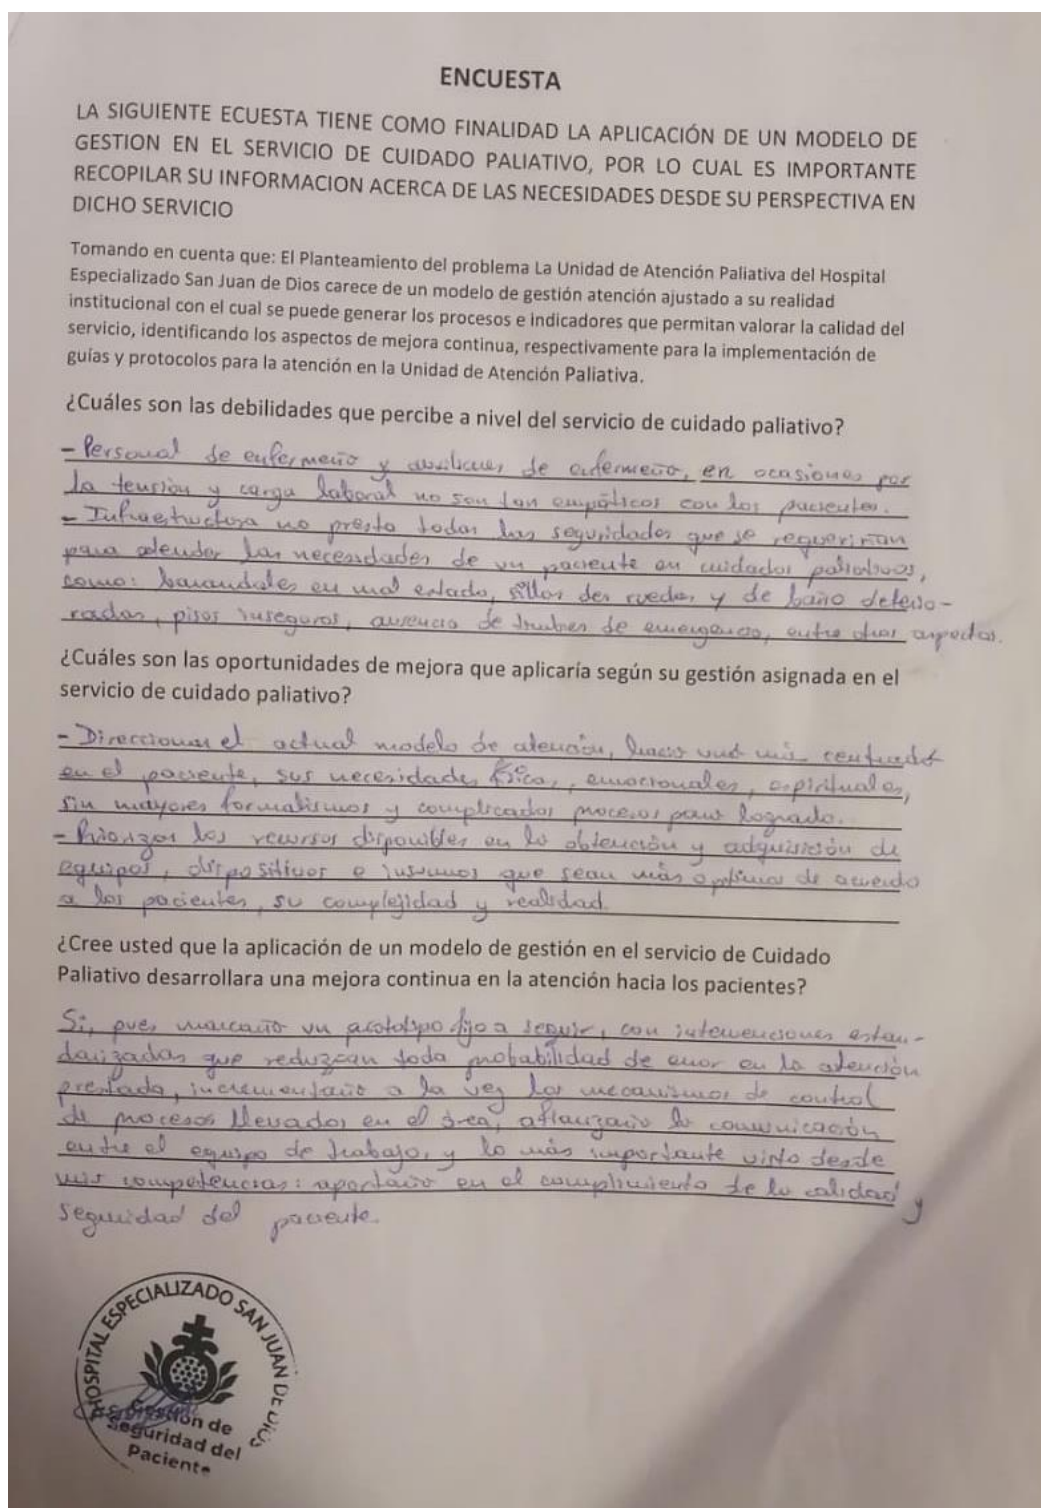 ENCUESTA
LA SIGUIENTE ECUESTA TIENE COMO FINALIDAD LA APLICACIÓN DE UN MODELO DE
GESTION EN EL SERVICIO DE CUIDADO PALIATIVO, POR LO CUAL ES IMPORTANTE
RECOPILAR SU INFORMACION ACERCA DE LAS NECESIDADES DESDE SU PERSPECTIVA EN
DICHO SERVICIO
Tomando en cuenta que: El Planteamiento del problema La Unidad de Atención Paliativa del Hospital
Especializado San Juan de Dios carece de un modelo de gestión atención ajustado a su realidad
institucional con el cual se puede generar los procesos e indicadores que permitan valorar la calidad del
servicio, identificando los aspectos de mejora continua, respectivamente para la implementación de
guías y protocolos para la atención en la Unidad de Atención Paliativa.
¿Cuáles son las debilidades que percibe a nivel del servicio de cuidado paliativo?
- Personal de enfermería y auxiliares de enfermería, en ocasiones por
la tensión y carga laboral no son tan empáticos con los pacientes.
- Infraestructura no presta todas las seguridades que se requerirían
para atender las necesidades de un paciente en cuidados paliativos,
como: barandales en mal estado, sillas des ruedas y de baño deterio-
radas, pisos inseguros, ausencia de timbres de emergencia, entre otros aspectos.
¿Cuáles son las oportunidades de mejora que aplicaría según su gestión asignada en el
servicio de cuidado paliativo?
- Direccionar el actual modelo de atención, hacia uno más centrado
en el paciente, sus necesidades físicas, emocionales, espirituales,
sin mayores formalismos y complicados procesos para lograrlo.
- Priorizar los recursos disponibles en la obtención y adquisición de
equipos, dispositivos e insumos que sean más óptimos de acuerdo
a los pacientes, su complejidad y realidad.
¿Cree usted que la aplicación de un modelo de gestión en el servicio de Cuidado
Paliativo desarrollara una mejora continua en la atención hacia los pacientes?
Si, pues marcaría un prototipo fijo a seguir, con intervenciones estan-
darizadas que reduzcan toda probabilidad de error en la atención
prestada, incrementaría a la vez los mecanismos de control
de procesos llevados en el área, afianzaría la comunicación
entre el equipo de trabajo, y lo más importante visto desde
mis competencias: aportaría en el cumplimiento de la calidad y
seguridad del paciente.
HOSPITAL ESPECIALIZADO SAN JUAN DE DIOS
Gestión de
Seguridad del
Paciente